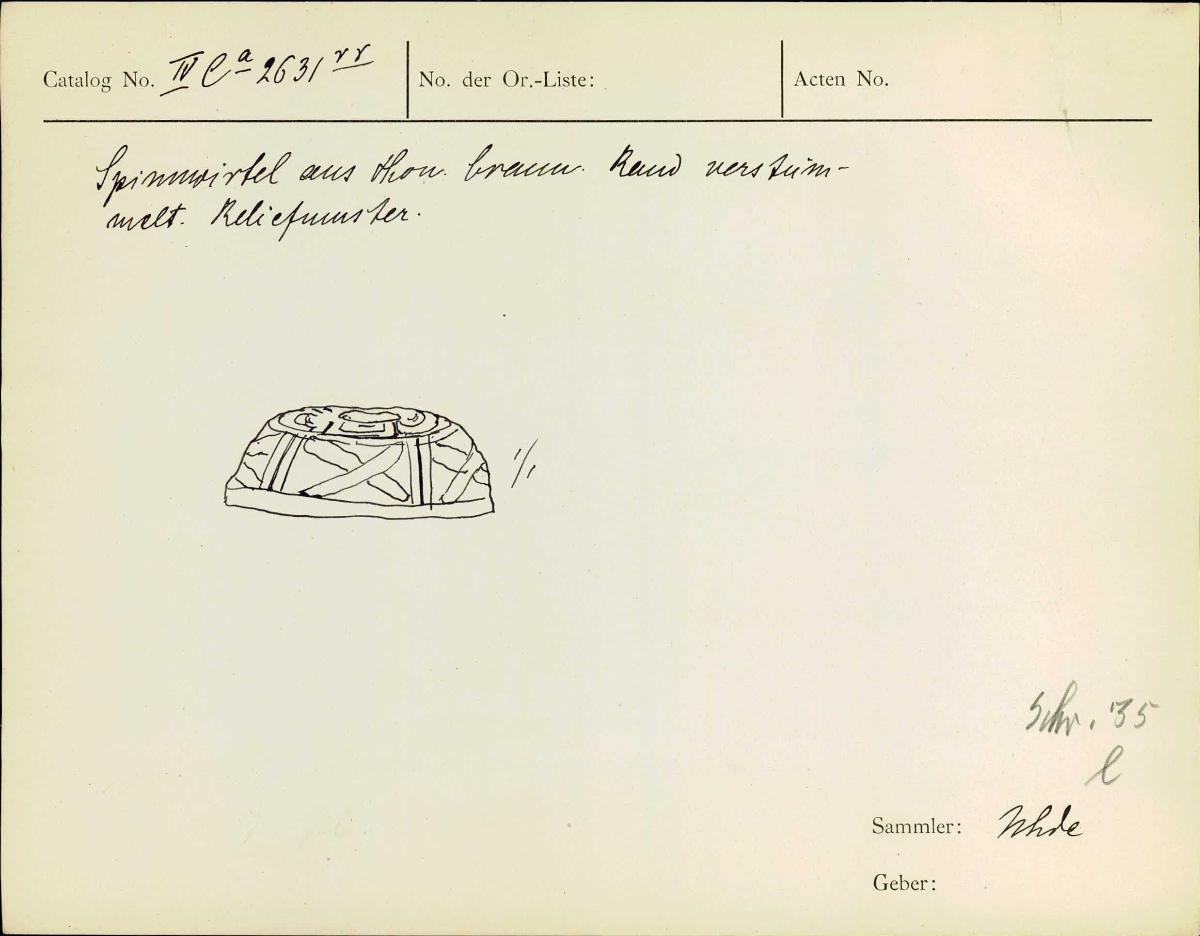 Catalog No. IV Ca 2631 rr
No. der Or.-Liste:
Acten No.
Spinnwirtel aus Thon. braun. Rand verstüm-
melt. Reliefmuster.
1/1
Schr. 35
l
Sammler: Uhde
Geber: